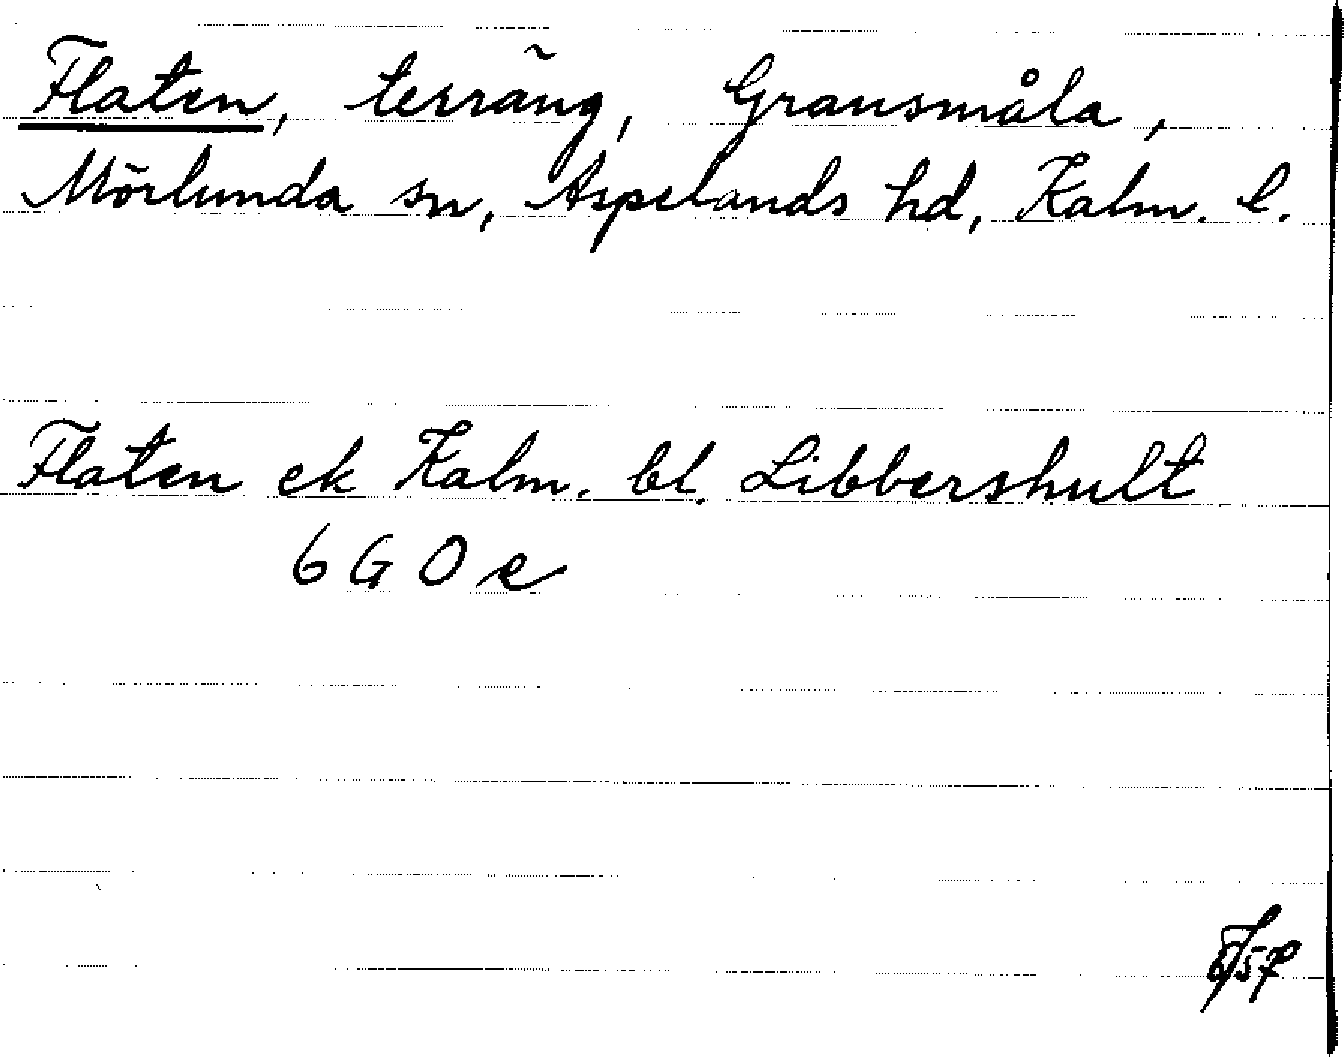 Flaten, terräng, Gransmåla,
Mörlunda sn, Aspelands hd, Kalm. l.
Flaten ek Kalm. bl. Libbershult
6 G 0 e